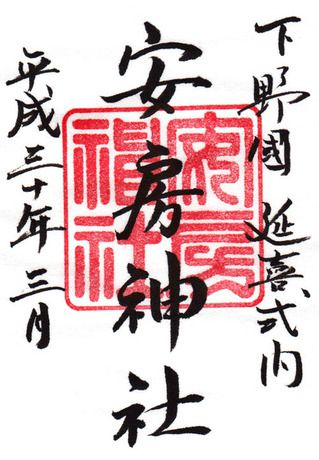 下野國 延喜式内
安房神社
平成三十年三月
安房神社